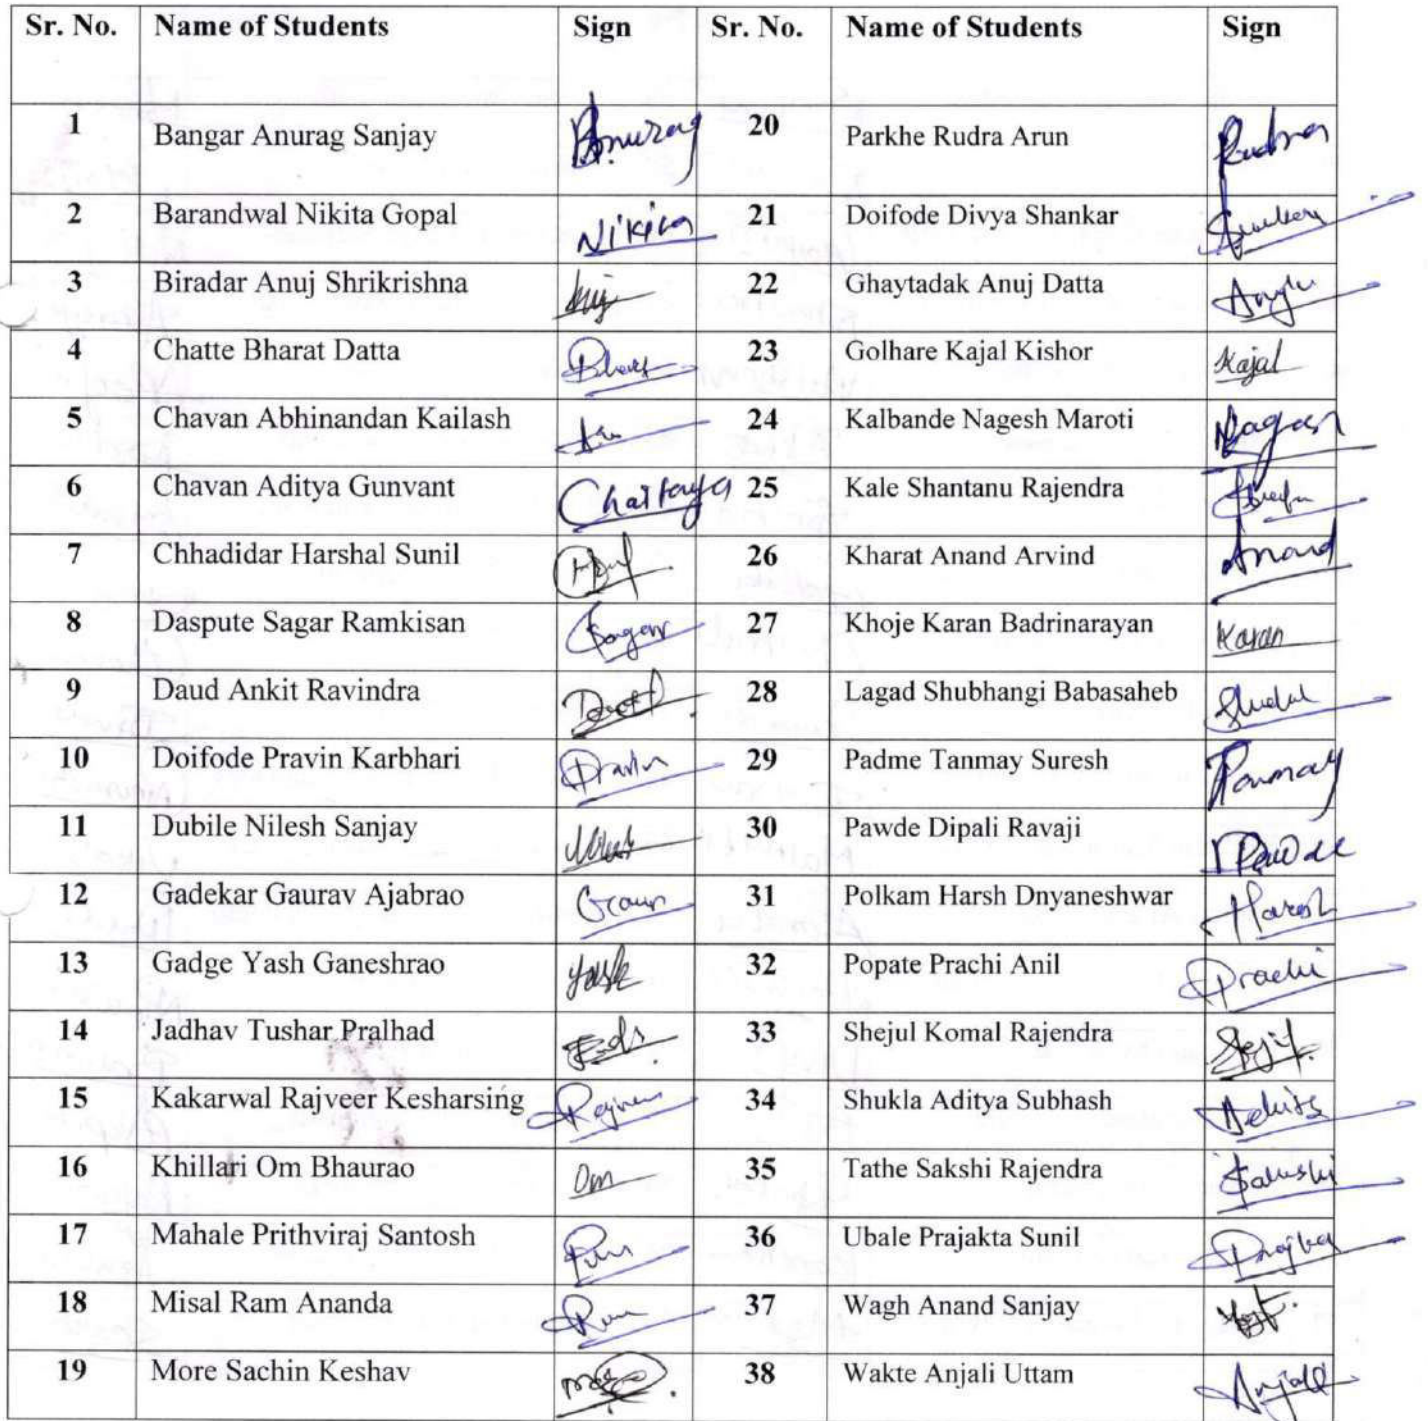 Sr. No. Name of Students Sign Sr. No. Name of Students Sign
1 Bangar Anurag Sanjay Anurag 20 Parkhe Rudra Arun Rudra
2 Barandwal Nikita Gopal Nikita 21 Doifode Divya Shankar
3 Biradar Anuj Shrikrishna 22 Ghaytadak Anuj Datta
4 Chatte Bharat Datta 23 Golhare Kajal Kishor Kajal
5 Chavan Abhinandan Kailash 24 Kalbande Nagesh Maroti
6 Chavan Aditya Gunvant Chaitanya 25 Kale Shantanu Rajendra
7 Chhadidar Harshal Sunil 26 Kharat Anand Arvind Anand
8 Daspute Sagar Ramkisan Sagar 27 Khoje Karan Badrinarayan Karan
9 Daud Ankit Ravindra 28 Lagad Shubhangi Babasaheb
10 Doifode Pravin Karbhari Pravin 29 Padme Tanmay Suresh Tanmay
11 Dubile Nilesh Sanjay 30 Pawde Dipali Ravaji
12 Gadekar Gaurav Ajabrao 31 Polkam Harsh Dnyaneshwar Harsh
13 Gadge Yash Ganeshrao Yash 32 Popate Prachi Anil Prachi
14 Jadhav Tushar Pralhad 33 Shejul Komal Rajendra
15 Kakarwal Rajveer Kesharsing 34 Shukla Aditya Subhash
16 Khillari Om Bhaurao Om 35 Tathe Sakshi Rajendra Sakshi
17 Mahale Prithviraj Santosh 36 Ubale Prajakta Sunil
18 Misal Ram Ananda 37 Wagh Anand Sanjay
19 More Sachin Keshav 38 Wakte Anjali Uttam Anjali